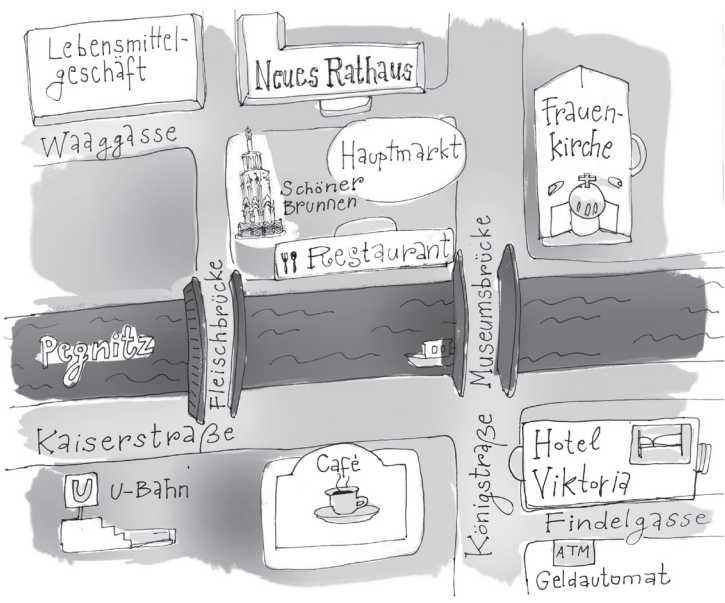 Lebensmittel-
geschäft
Neues Rathaus
Waaggasse
Frauen-
kirche
Hauptmarkt
Schöner
Brunnen
Restaurant
Fleischbrücke
Museumsbrücke
Pegnitz
Kaiserstraße
Königstraße
Hotel
Viktoria
Café
U
U-Bahn
Findelgasse
ATM
Geldautomat